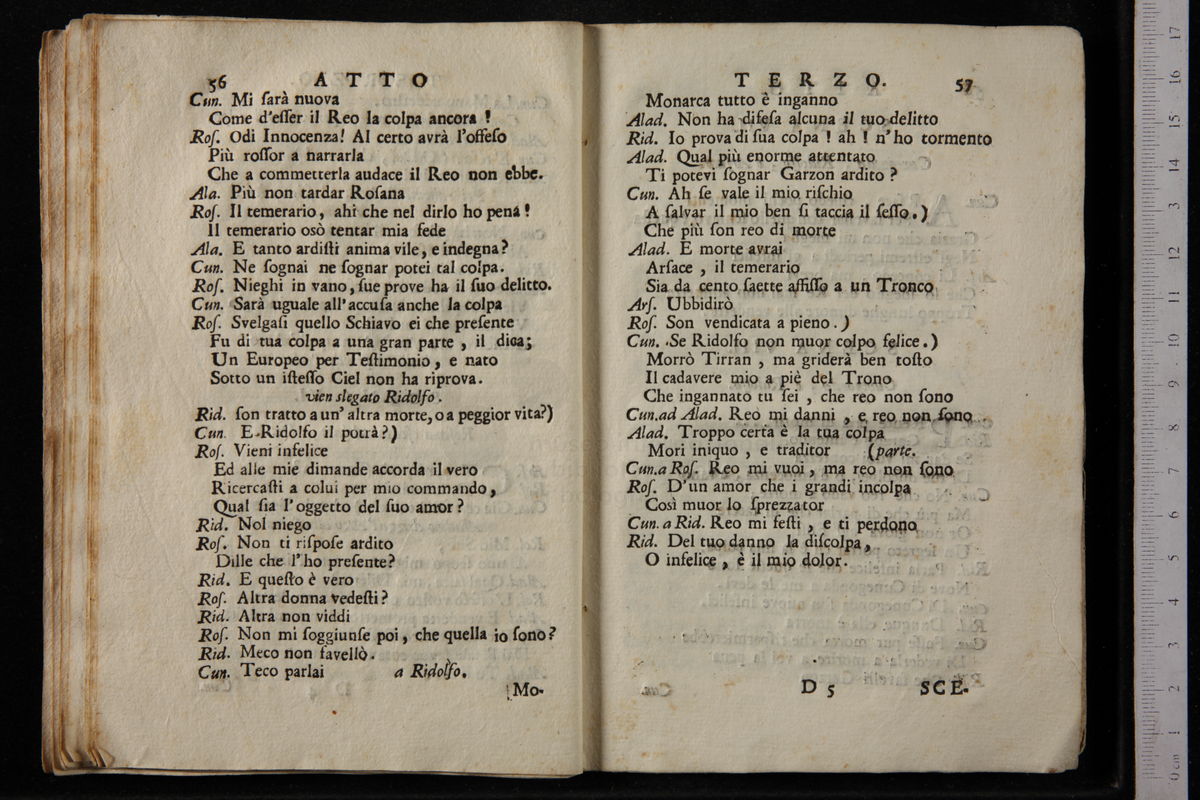 56 ATTO
Cun. Mi ſarà nuova
Come d'eſſer il Reo la colpa ancora !
Roſ. Odi Innocenza! Al certo avrà l'offeſo
Più roſſor a narrarla
Che a commetterla audace il Reo non ebbe.
Ala. Più non tardar Roſana
Roſ. Il temerario, ahi che nel dirlo ho pena!
Il temerario osò tentar mia fede
Ala. E tanto ardiſti anima vile, e indegna?
Cun. Ne ſognai ne ſognar potei tal colpa.
Roſ. Nieghi in vano, ſue prove ha il ſuo delitto.
Cun. Sarà uguale all'accuſa anche la colpa
Roſ. Svelgaſi quello Schiavo ei che preſente
Fu di tua colpa a una gran parte , il dica;
Un Europeo per Teſtimonio , e nato
Sotto un iſteſſo Ciel non ha riprova.
vien slegato Ridolfo.
Rid. ſon tratto a un' altra morte, o a peggior vita?)
Cun. E Ridolfo il potrà?)
Roſ. Vieni infelice
Ed alle mie dimande accorda il vero
Ricercaſti a colui per mio commando,
Qual ſia l'oggetto del ſuo amor?
Rid. Nol niego
Roſ. Non ti riſpoſe ardito
Dille che l'ho preſente?
Rid. E queſto è vero
Roſ. Altra donna vedeſti?
Rid. Altra non viddi
Roſ. Non mi ſoggiunſe poi, che quella io ſono?
Rid. Meco non favellò.
Cun. Teco parlai a Ridolfo.
Mo-
TERZO. 57
Monarca tutto è inganno
Alad. Non ha difeſa alcuna il tuo delitto
Rid. Io prova di ſua colpa ! ah ! n'ho tormento
Alad. Qual più enorme attentato
Ti potevi ſognar Garzon ardito ?
Cun. Ah ſe vale il mio riſchio
A ſalvar il mio ben ſi taccia il ſeſſo.)
Che più ſon reo di morte
Alad. E morte avrai
Arſace , il temerario
Sia da cento ſaette affiſſo a un Tronco
Arſ. Ubbidirò
Roſ. Son vendicata a pieno.)
Cun. Se Ridolfo non muor colpo felice.)
Morrò Tirran , ma griderà ben toſto
Il cadavere mio a piè del Trono
Che ingannato tu ſei , che reo non ſono
Cun.ad Alad. Reo mi danni , e reo non ſono
Alad. Troppo certa è la tua colpa
Mori iniquo , e traditor (parte.
Cun.a Roſ. Reo mi vuoi , ma reo non ſono
Roſ. D'un amor che i grandi incolpa
Così muor lo ſprezzator
Cun. a Rid. Reo mi feſti , e ti perdono
Rid. Del tuo danno la diſcolpa,
O infelice, è il mio dolor.
D 5 SCE-